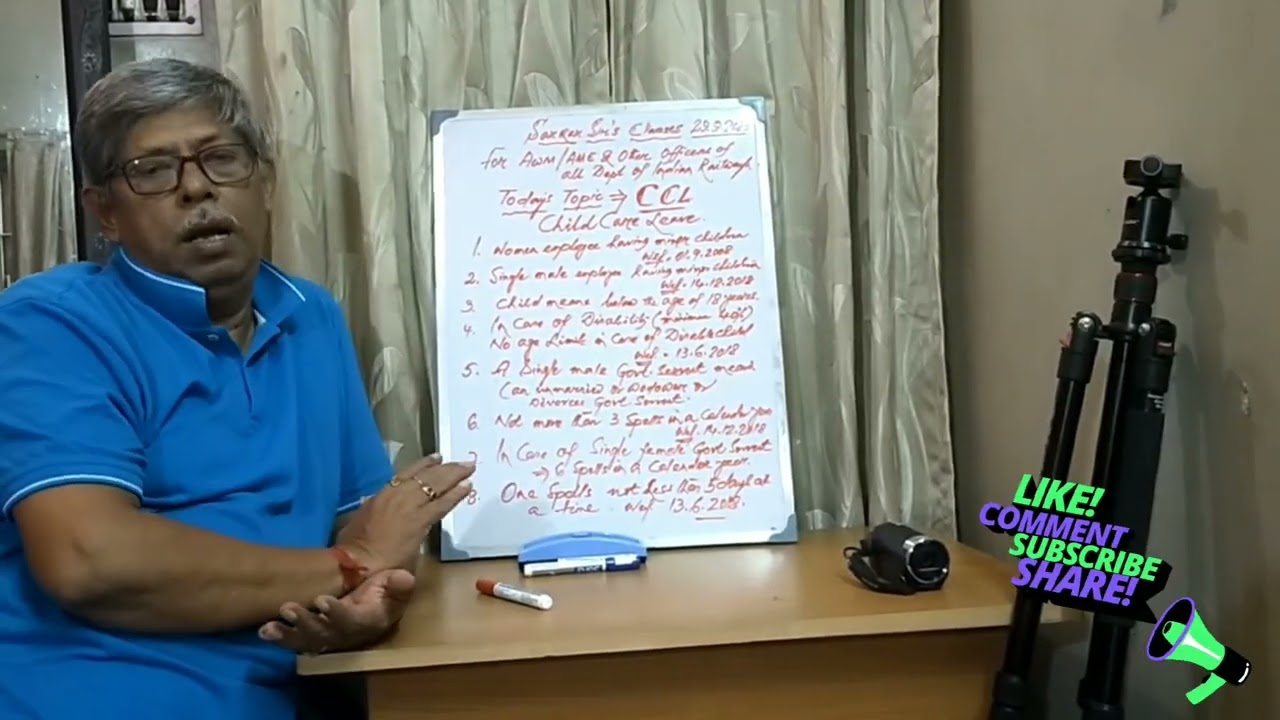 Sarkar Sir's Classes 29.9.
For AWM/AME & Other Officers of
all Dept of Indian Railways
Today's Topic ⇒ CCL
Child Care Leave.
1. Women employee having minor children
Wef. 01.9.2008
2. Single male employee having minor children
Wef. 14.12.2018
3. Child means below the age of 18 years.
4. In Case of Disability (minimum 40%)
No age Limit in case of Disable child
Wef - 13.6.2018
5. A Single male Govt. Servant means
(an unmarried or or
Divorcee Govt Servant.
6. Not more than 3 Spells in a Calendar year
Wef. 14.12.2018
7. In Case of Single female Govt Servant
⇒ 6 Spells in a Calendar year.
8. One Spells not less than 5 days at
a time. Wef - 13.6.2018.
LIKE!
COMMENT
SUBSCRIBE
SHARE!